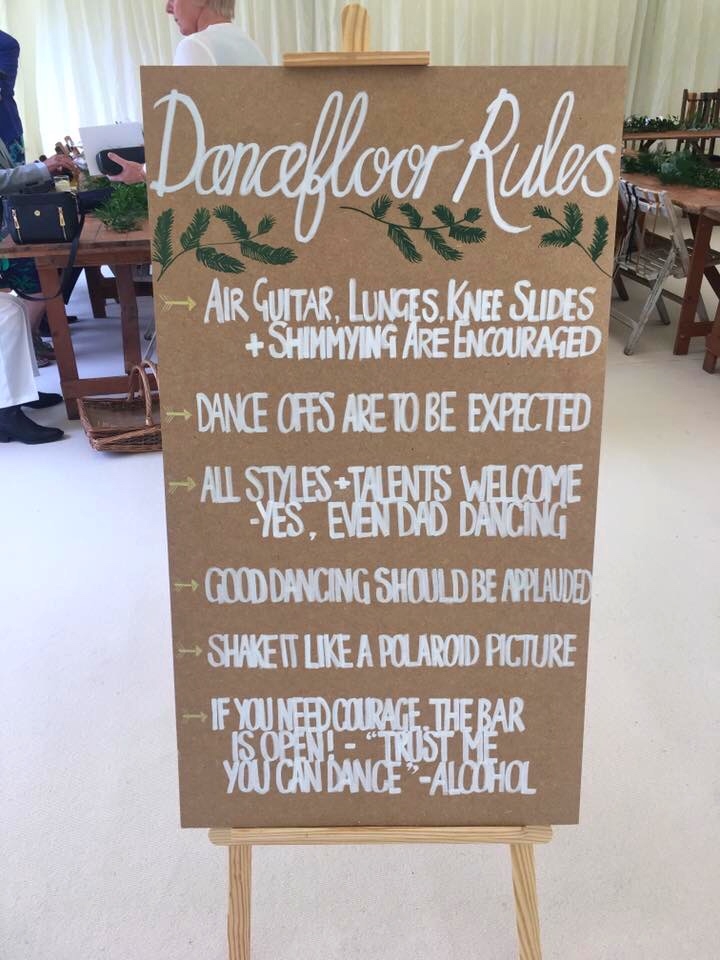 Dancefloor Rules
→ AIR GUITAR, LUNGES, KNEE SLIDES
+ SHIMMYING ARE ENCOURAGED
→ DANCE OFFS ARE TO BE EXPECTED
→ ALL STYLES + TALENTS WELCOME
-YES, EVEN DAD DANCING
→ GOOD DANCING SHOULD BE APPLAUDED
→ SHAKE IT LIKE A POLAROID PICTURE
→ IF YOU NEED COURAGE, THE BAR
IS OPEN! - "TRUST ME
YOU CAN DANCE" - ALCOHOL